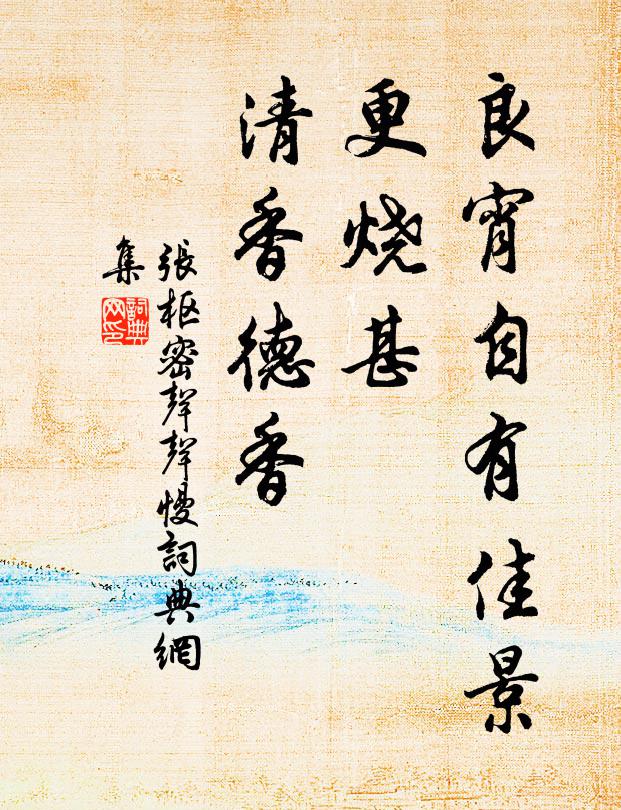 良宵自有佳景
更烧甚
清香德香
張枢密聲聲慢詞典網
集
詞典网印